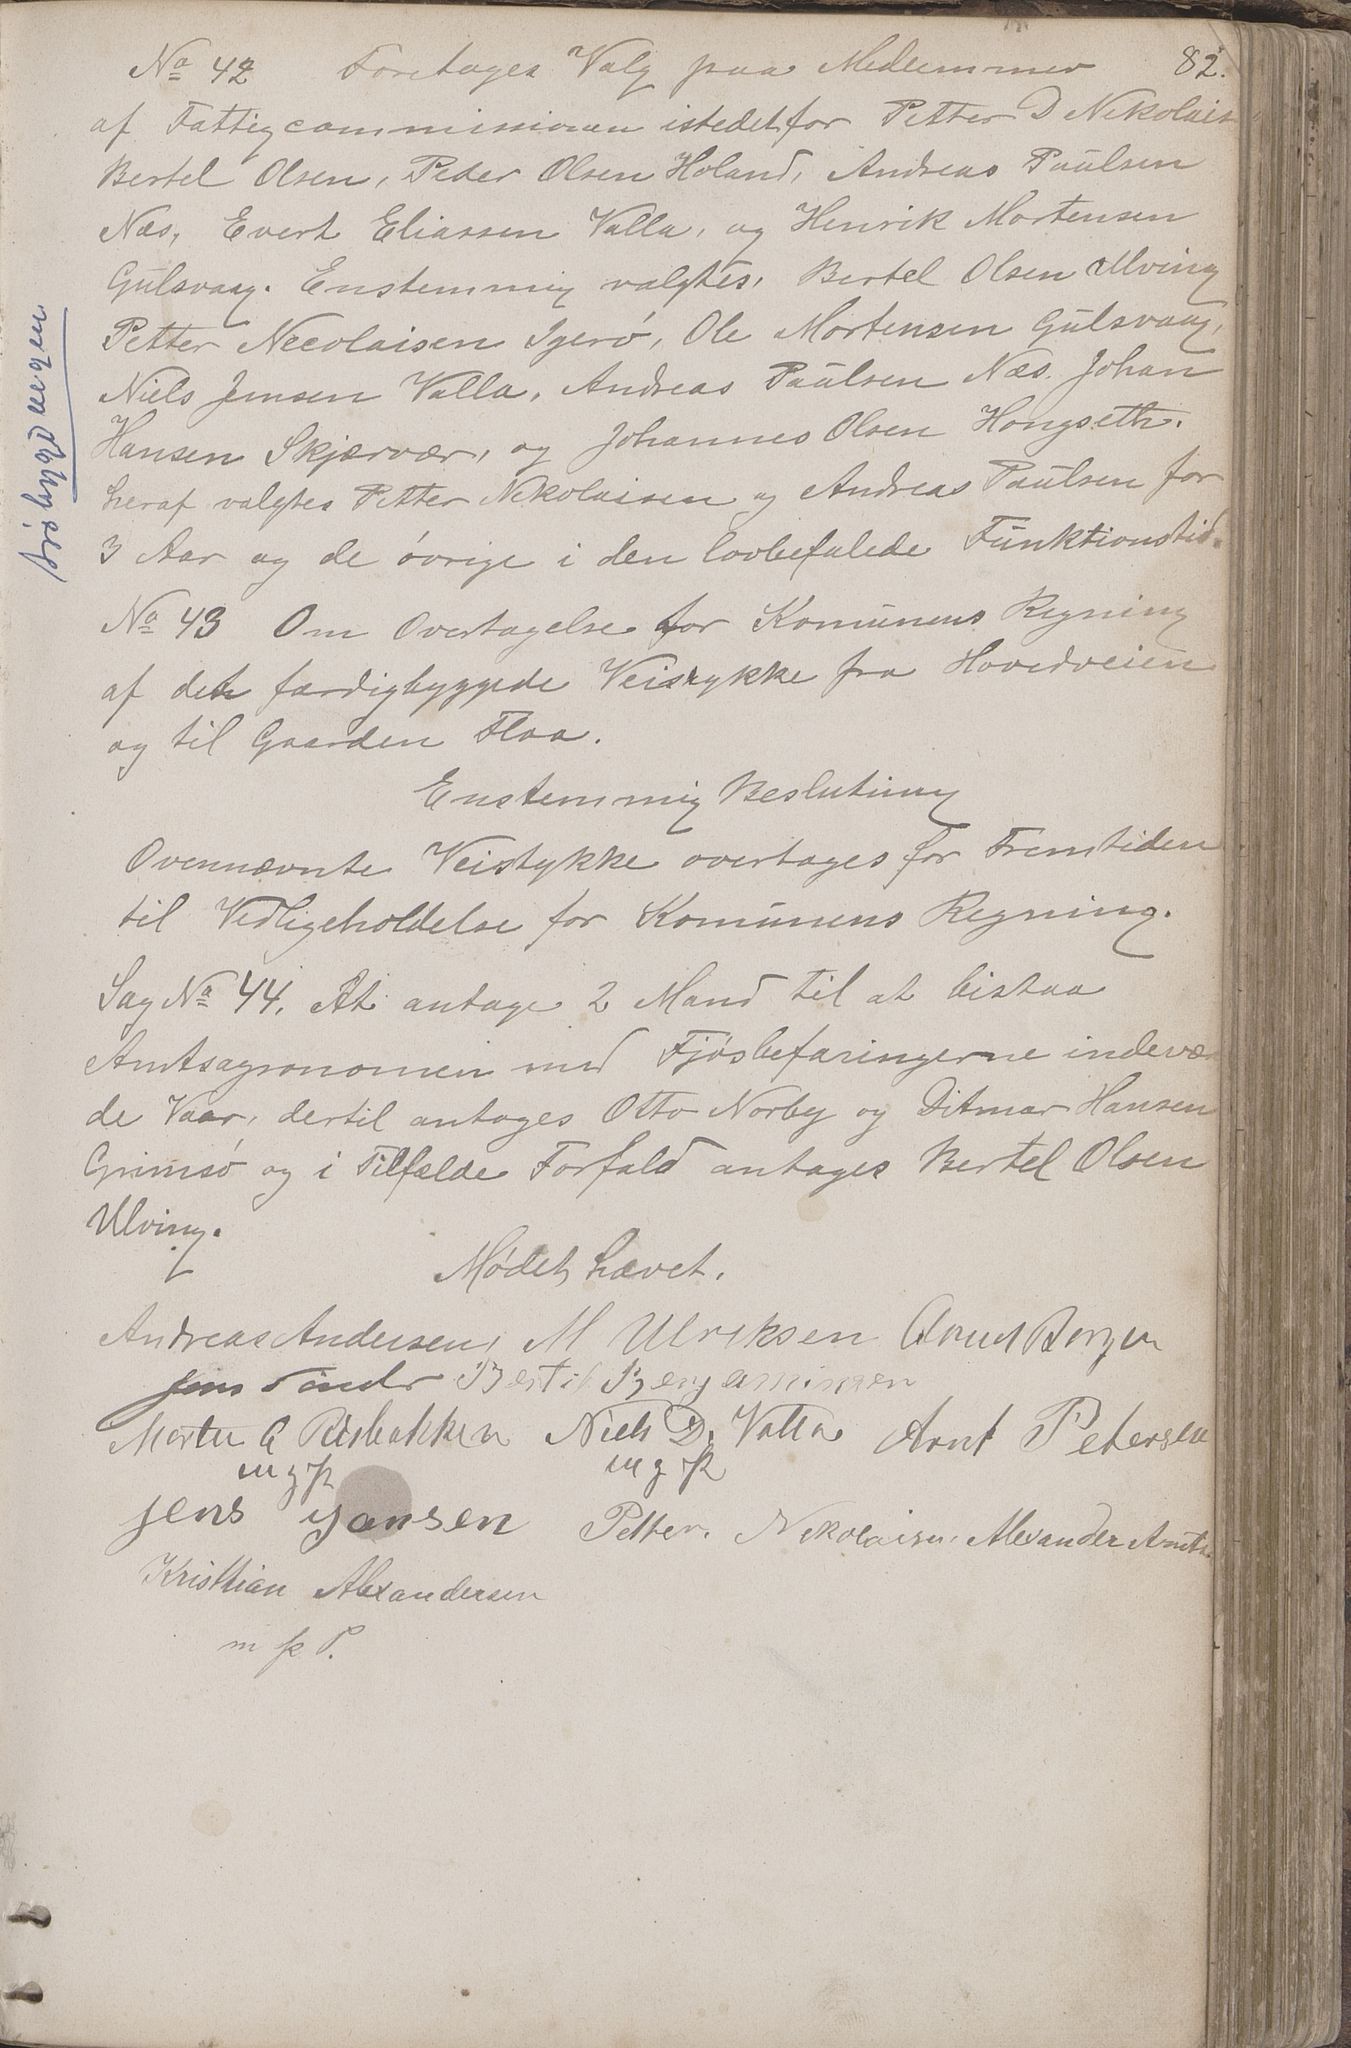 82.
No 42 Foretages Valg paa Medlemmer
af Fattigcommissionen istedetfor Petter D Nikolais
Bertel Olsen, Peder Olsen Holand, Andreas Paulsen
Næs, Evert Eliassen Valla, og Henrik Mortensen
Gulsvaag. Enstemmig valgtes, Bertel Olsen Ulving
Petter Necolaisen Igerø, Ole Mortensen Gulsvaag,
Niels Jensen Valla, Andreas Paulsen Næs. Johan
Hansen Skjærvær, og Johannes Olsen Hongseth.
heraf valgtes Petter Nikolaisen og Andreas Paulsen for
3 Aar og de øvrige i den lovbefalede Funktionstid.
No 43 Om Overtagelse for Komunens Regning
af det færdigbyggede Veistykke fra Hovedveien
og til Gaarden Flaa.
Enstemmig Beslutning
Ovennævnte Veistykke overtages for Fremtiden
til Vedligeholdelse for Komunens Regning.
Sag No 44. At antage 2 Mand til at bistaa
Amtsagronomen med Fjøsbefaringerne indevæ
de Vaar, dertil antages Otto Norby og Ditmar Hansen
Grimsø og i Tilfælde Forfald antages Bertel Olsen
Ulving.
Mødet hævet.
Andreas Andersen, M Ulriksen Arnet Borgen
Jens Bertil Benjaminsen
Morten A Risbakken Niels D. Valla Arnt Petersen
m g p m g p
Jens Jansen Petter Nikolaisen Alexander
Kristian Alexandersen
m p P.